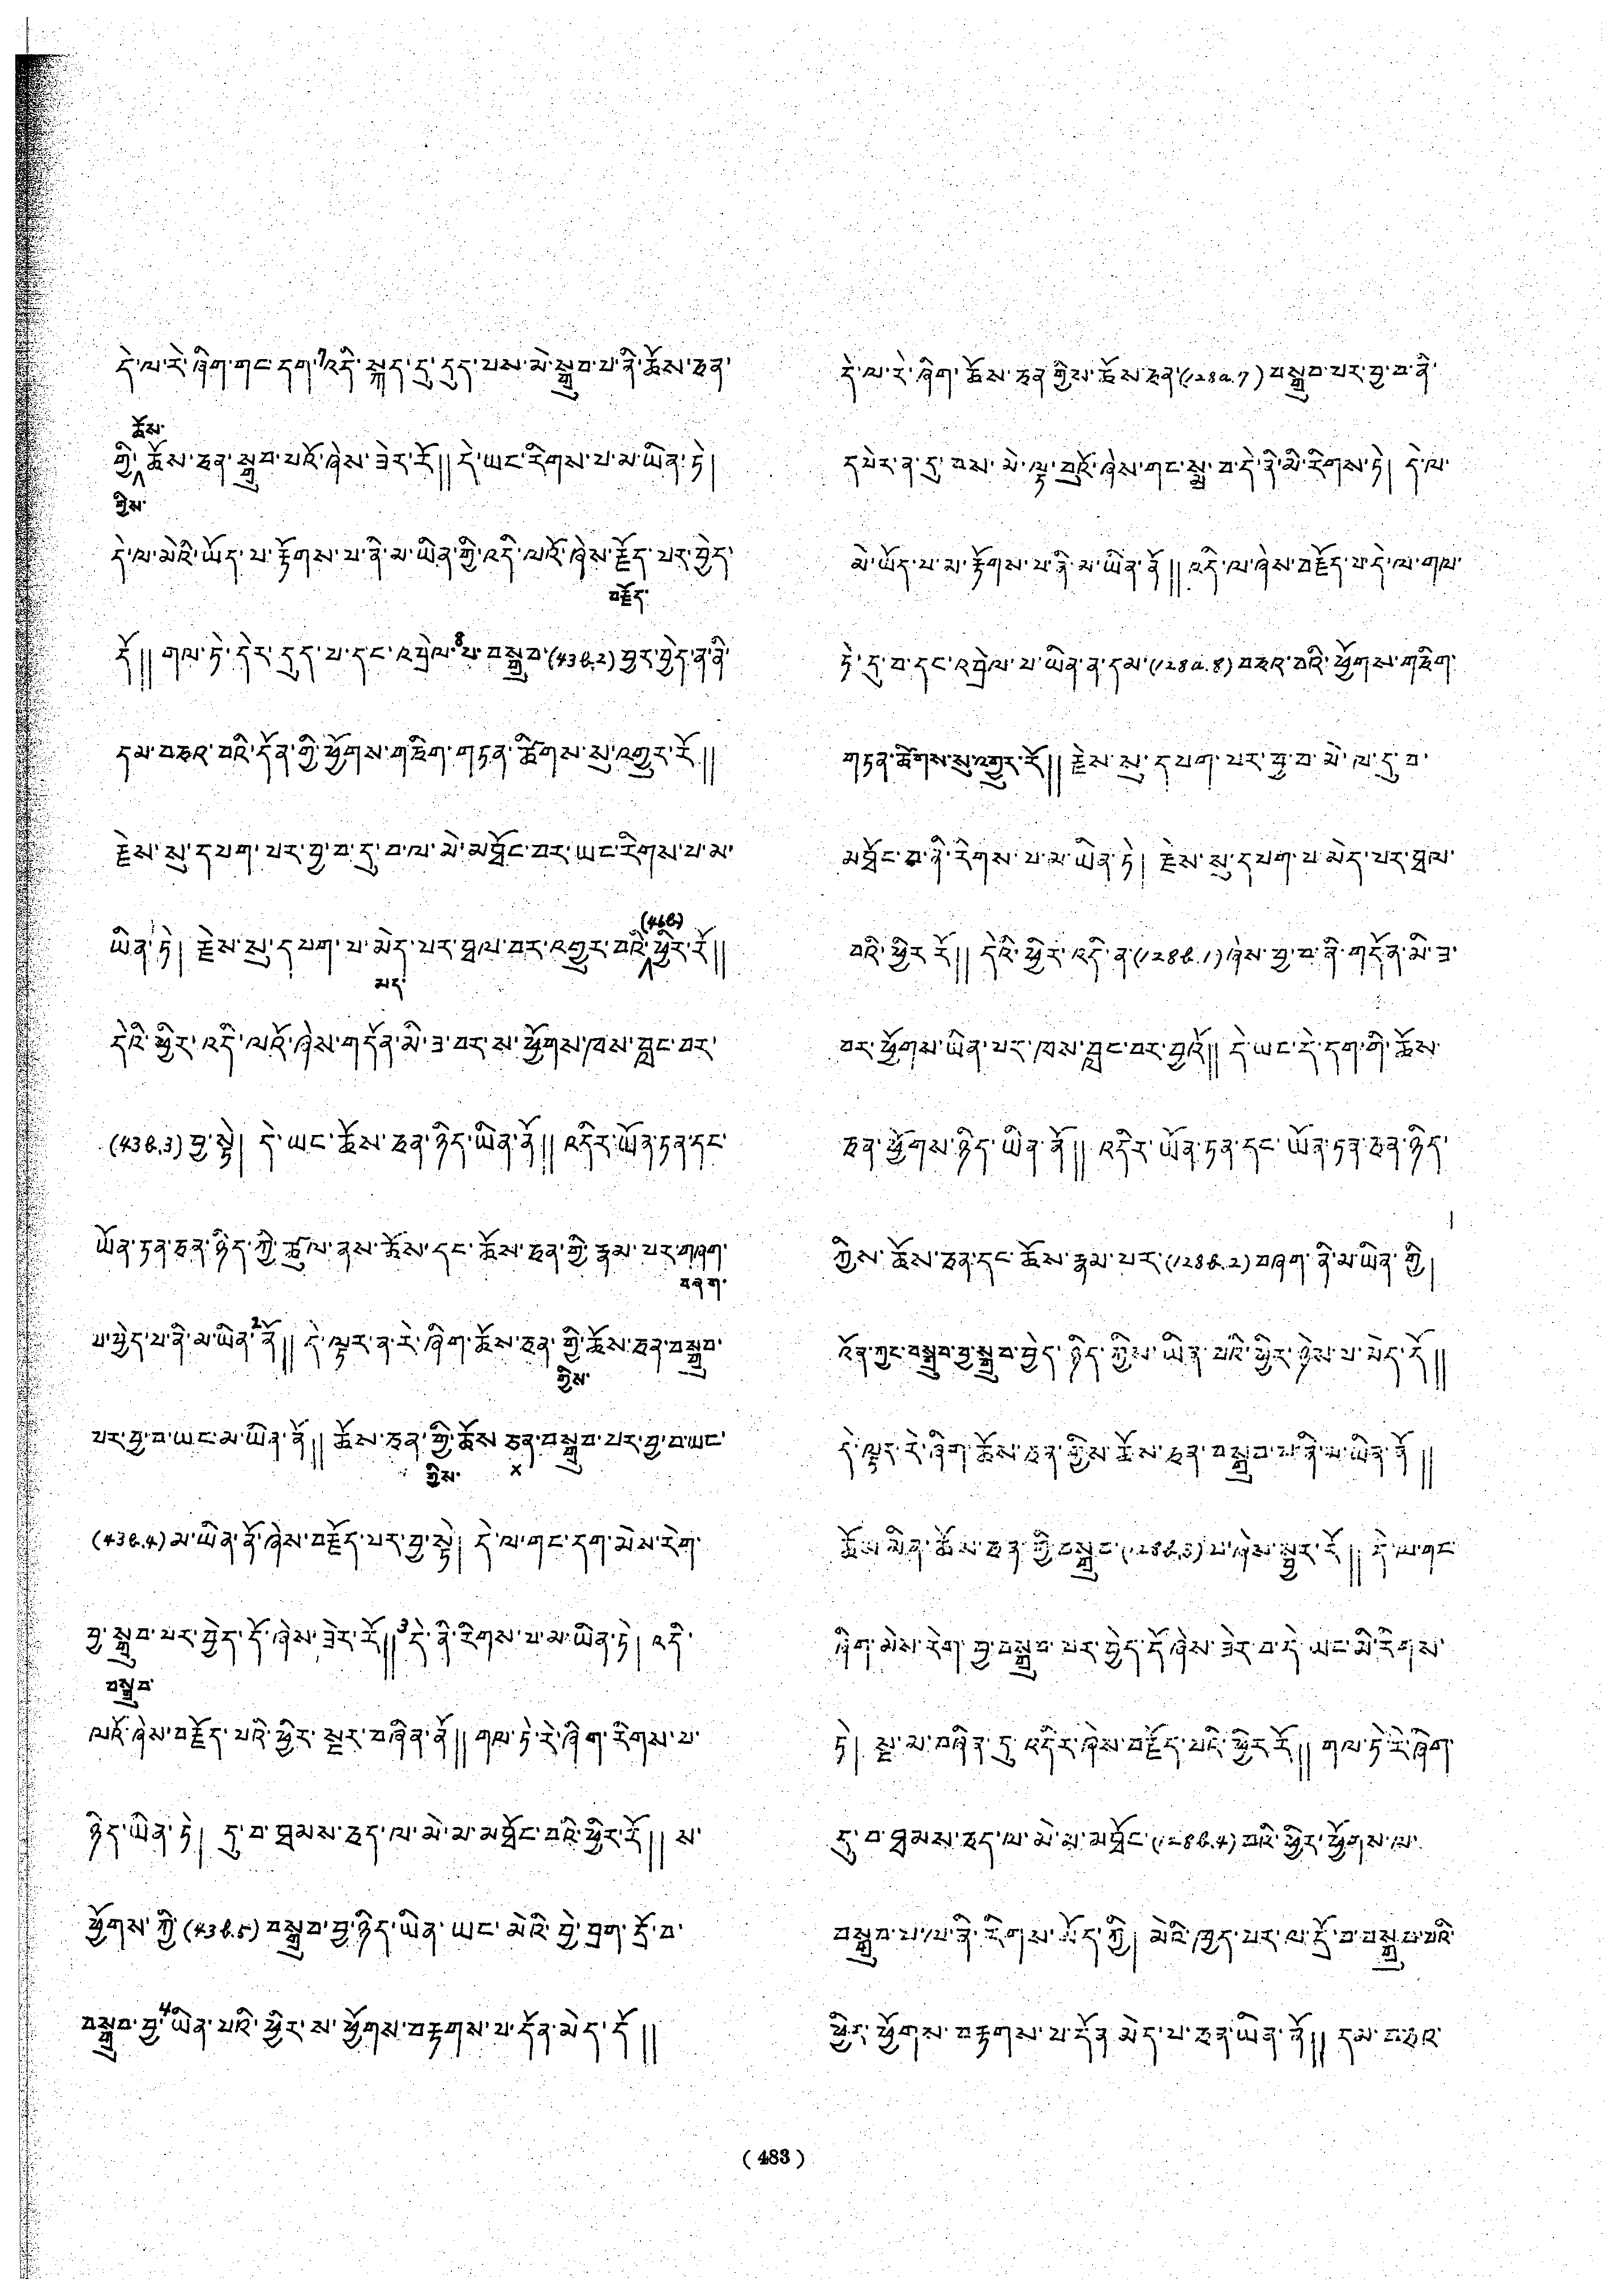 དེ་ལ་རེ་ཞིག་གང་དག་⁷འདི་སྐད་དུ་དུད་པས་མེ་སྒྲུབ་པ་ནི་ཆོས་ཅན་
ཆོས་
གྱི་‸ཆོས་ཅན་སྒྲུབ་པའོ་ཞེས་ཟེར་རོ།། དེ་ཡང་རིགས་པ་མ་ཡིན་ཏེ།
གྱིས་
དེ་ལ་མེའི་ཡོད་པ་རྟོགས་པ་ནི་མ་ཡིན་གྱི་འདི་ལའོ་ཞེས་རྗོད་པར་བྱེད་
བརྗོད་
དོ།། གལ་ཏེ་དེར་དུད་པ་དང་འབྲེལ་⁸པ་བསྒྲུབ་(43b.2)བྱར་བྱེད་ན་ནི་
དམ་བཅའ་བའི་དོན་གྱི་ཕྱོགས་གཅིག་གཏན་ཚིགས་སུ་འགྱུར་རོ།།
རྗེས་སུ་དཔག་པར་བྱ་བ་དུ་བ་ལ་མེ་མཐོང་བར་ཡང་རིགས་པ་མ་
(466)
ཡིན་ཏེ། རྗེས་སུ་དཔག་པ་མེད་པར་ཐལ་བར་འགྱུར་བའི་‸ཕྱིར་རོ།།
མད་
དེའི་ཕྱིར་འདི་ལའོ་ཞེས་གདོན་མི་ཟ་བར་ས་ཕྱོགས་ཁས་བླང་བར་
(43b.3)བྱ་སྟེ། དེ་ཡང་ཆོས་ཅན་ཉིད་ཡིན་ནོ།། འདིར་ཡོན་ཏན་དང་
ཡོན་ཏན་ཅན་ཉིད་ཀྱི་ཚུལ་ནས་ཆོས་དང་ཆོས་ཅན་གྱི་རྣམ་པར་གཞག་
བཞག་
པ་བྱེད་པ་ནི་མ་ཡིན་²ནོ།། དེ་ལྟར་ན་རེ་ཞིག་ཆོས་ཅན་གྱི་ཆོས་ཅན་བསྒྲུབ་
གྱིས་
པར་བྱ་བ་ཡང་མ་ཡིན་ནོ།། ཆོས་ཅན་གྱི་ཆོས་ཅན་བསྒྲུབ་པར་བྱ་བ་ཡང་
གྱིས་ x
(43b.4)མ་ཡིན་ནོ་ཞེས་བརྗོད་པར་བྱ་སྟེ། དེ་ལ་གང་དག་མེས་རེག་
བྱ་སྒྲུབ་པར་བྱེད་དོ་ཞེས་ཟེར་རོ།།³དེ་ནི་རིགས་པ་མ་ཡིན་ཏེ། འདི་
བསྒྲུབ་
ལའོ་ཞེས་བརྗོད་པའི་ཕྱིར་སྔར་བཞིན་ནོ།། གལ་ཏེ་རེ་ཞིག་རིགས་པ་
ཉིད་ཡིན་ཏེ། དུ་བ་ཐམས་ཅད་ལ་མེ་མ་མཐོང་བའི་ཕྱིར་རོ།། ས་
ཕྱོགས་ཀྱི་(43b.5)བསྒྲུབ་བྱ་ཉིད་ཡིན་ཡང་མེའི་བྱེ་བྲག་དྲོ་བ་
བསྒྲུབ་བྱ་⁴ཡིན་པའི་ཕྱིར་ས་ཕྱོགས་བརྟགས་པ་དོན་མེད་དོ།།
དེ་ལ་རེ་ཞིག་ཆོས་ཅན་གྱིས་ཆོས་ཅན་(128a.7)བསྒྲུབ་པར་བྱ་བ་ནི་
དཔེར་ན་དུ་བས་མེ་ལྟ་བུའོ་ཞེས་གང་སྨྲ་བ་དེ་ནི་མི་རིགས་ཏེ། དེ་ལ་
མེ་ཡོད་པ་མ་རྟོགས་པ་ནི་མ་ཡིན་ནོ།། འདི་ལ་ཞེས་བརྗོད་པ་དེ་ལ་གལ་
ཏེ་དུ་བ་དང་འབྲེལ་པ་ཡིན་ན་དམ་(128a.8)བཅའ་བའི་ཕྱོགས་གཅིག་
གཏན་ཚིགས་སུ་འགྱུར་རོ།། རྗེས་སུ་དཔག་པར་བྱ་བ་མེ་ལ་དུ་བ་
མཐོང་བ་ནི་རིགས་པ་མ་ཡིན་ཏེ། རྗེས་སུ་དཔག་པ་མེད་པར་ཐལ་
བའི་ཕྱིར་རོ།། དེའི་ཕྱིར་འདི་ན་(128b.1)ཞེས་བྱ་བ་ནི་གདོན་མི་ཟ་
བར་ཕྱོགས་ཡིན་པར་ཁས་བླང་བར་བྱའོ།། དེ་ཡང་དེ་དག་གི་ཆོས་
ཅན་ཕྱོགས་ཉིད་ཡིན་ནོ།། འདིར་ཡོན་ཏན་དང་ཡོན་ཏན་ཅན་ཉིད་
ཀྱིས་ཆོས་ཅན་དང་ཆོས་རྣམ་པར་(128b.2)བཞག་ནི་མ་ཡིན་གྱི།
འོན་ཀྱང་བསྒྲུབ་བྱ་སྒྲུབ་བྱེད་ཉིད་ཀྱིས་ཡིན་པའི་ཕྱིར་ཉེས་པ་མེད་དོ།།
དེ་ལྟར་རེ་ཞིག་ཆོས་ཅན་གྱིས་ཆོས་ཅན་བསྒྲུབ་པ་ནི་མ་ཡིན་ནོ།།
ཆོས་མིན་ཆོས་ཅན་གྱི་བསྒྲུབ་(128b.3)པ་ཞེས་སྦྱར་རོ།། དེ་ལ་གང་
ཞིག་མེས་རེག་བྱ་བསྒྲུབ་པར་བྱེད་དོ་ཞེས་ཟེར་བ་དེ་ཡང་མི་རིགས་
ཏེ། སྔ་མ་བཞིན་དུ་འདིར་ཞེས་བརྗོད་པའི་ཕྱིར་རོ།། གལ་ཏེ་རེ་ཞིག་
དུ་བ་ཐམས་ཅད་ལ་མེ་མ་མཐོང་(128b.4)བའི་ཕྱིར་ཕྱོགས་ལ་
བསྒྲུབ་པ་ལ་ནི་རིགས་མོད་ཀྱི། མེའི་ཁྱད་པར་ལ་དྲོ་བ་བསྒྲུབ་པའི་
ཕྱིར་ཕྱོགས་བརྟགས་པ་དོན་མེད་པ་ཅན་ཡིན་ནོ།། དམ་བཅའ་
(483)